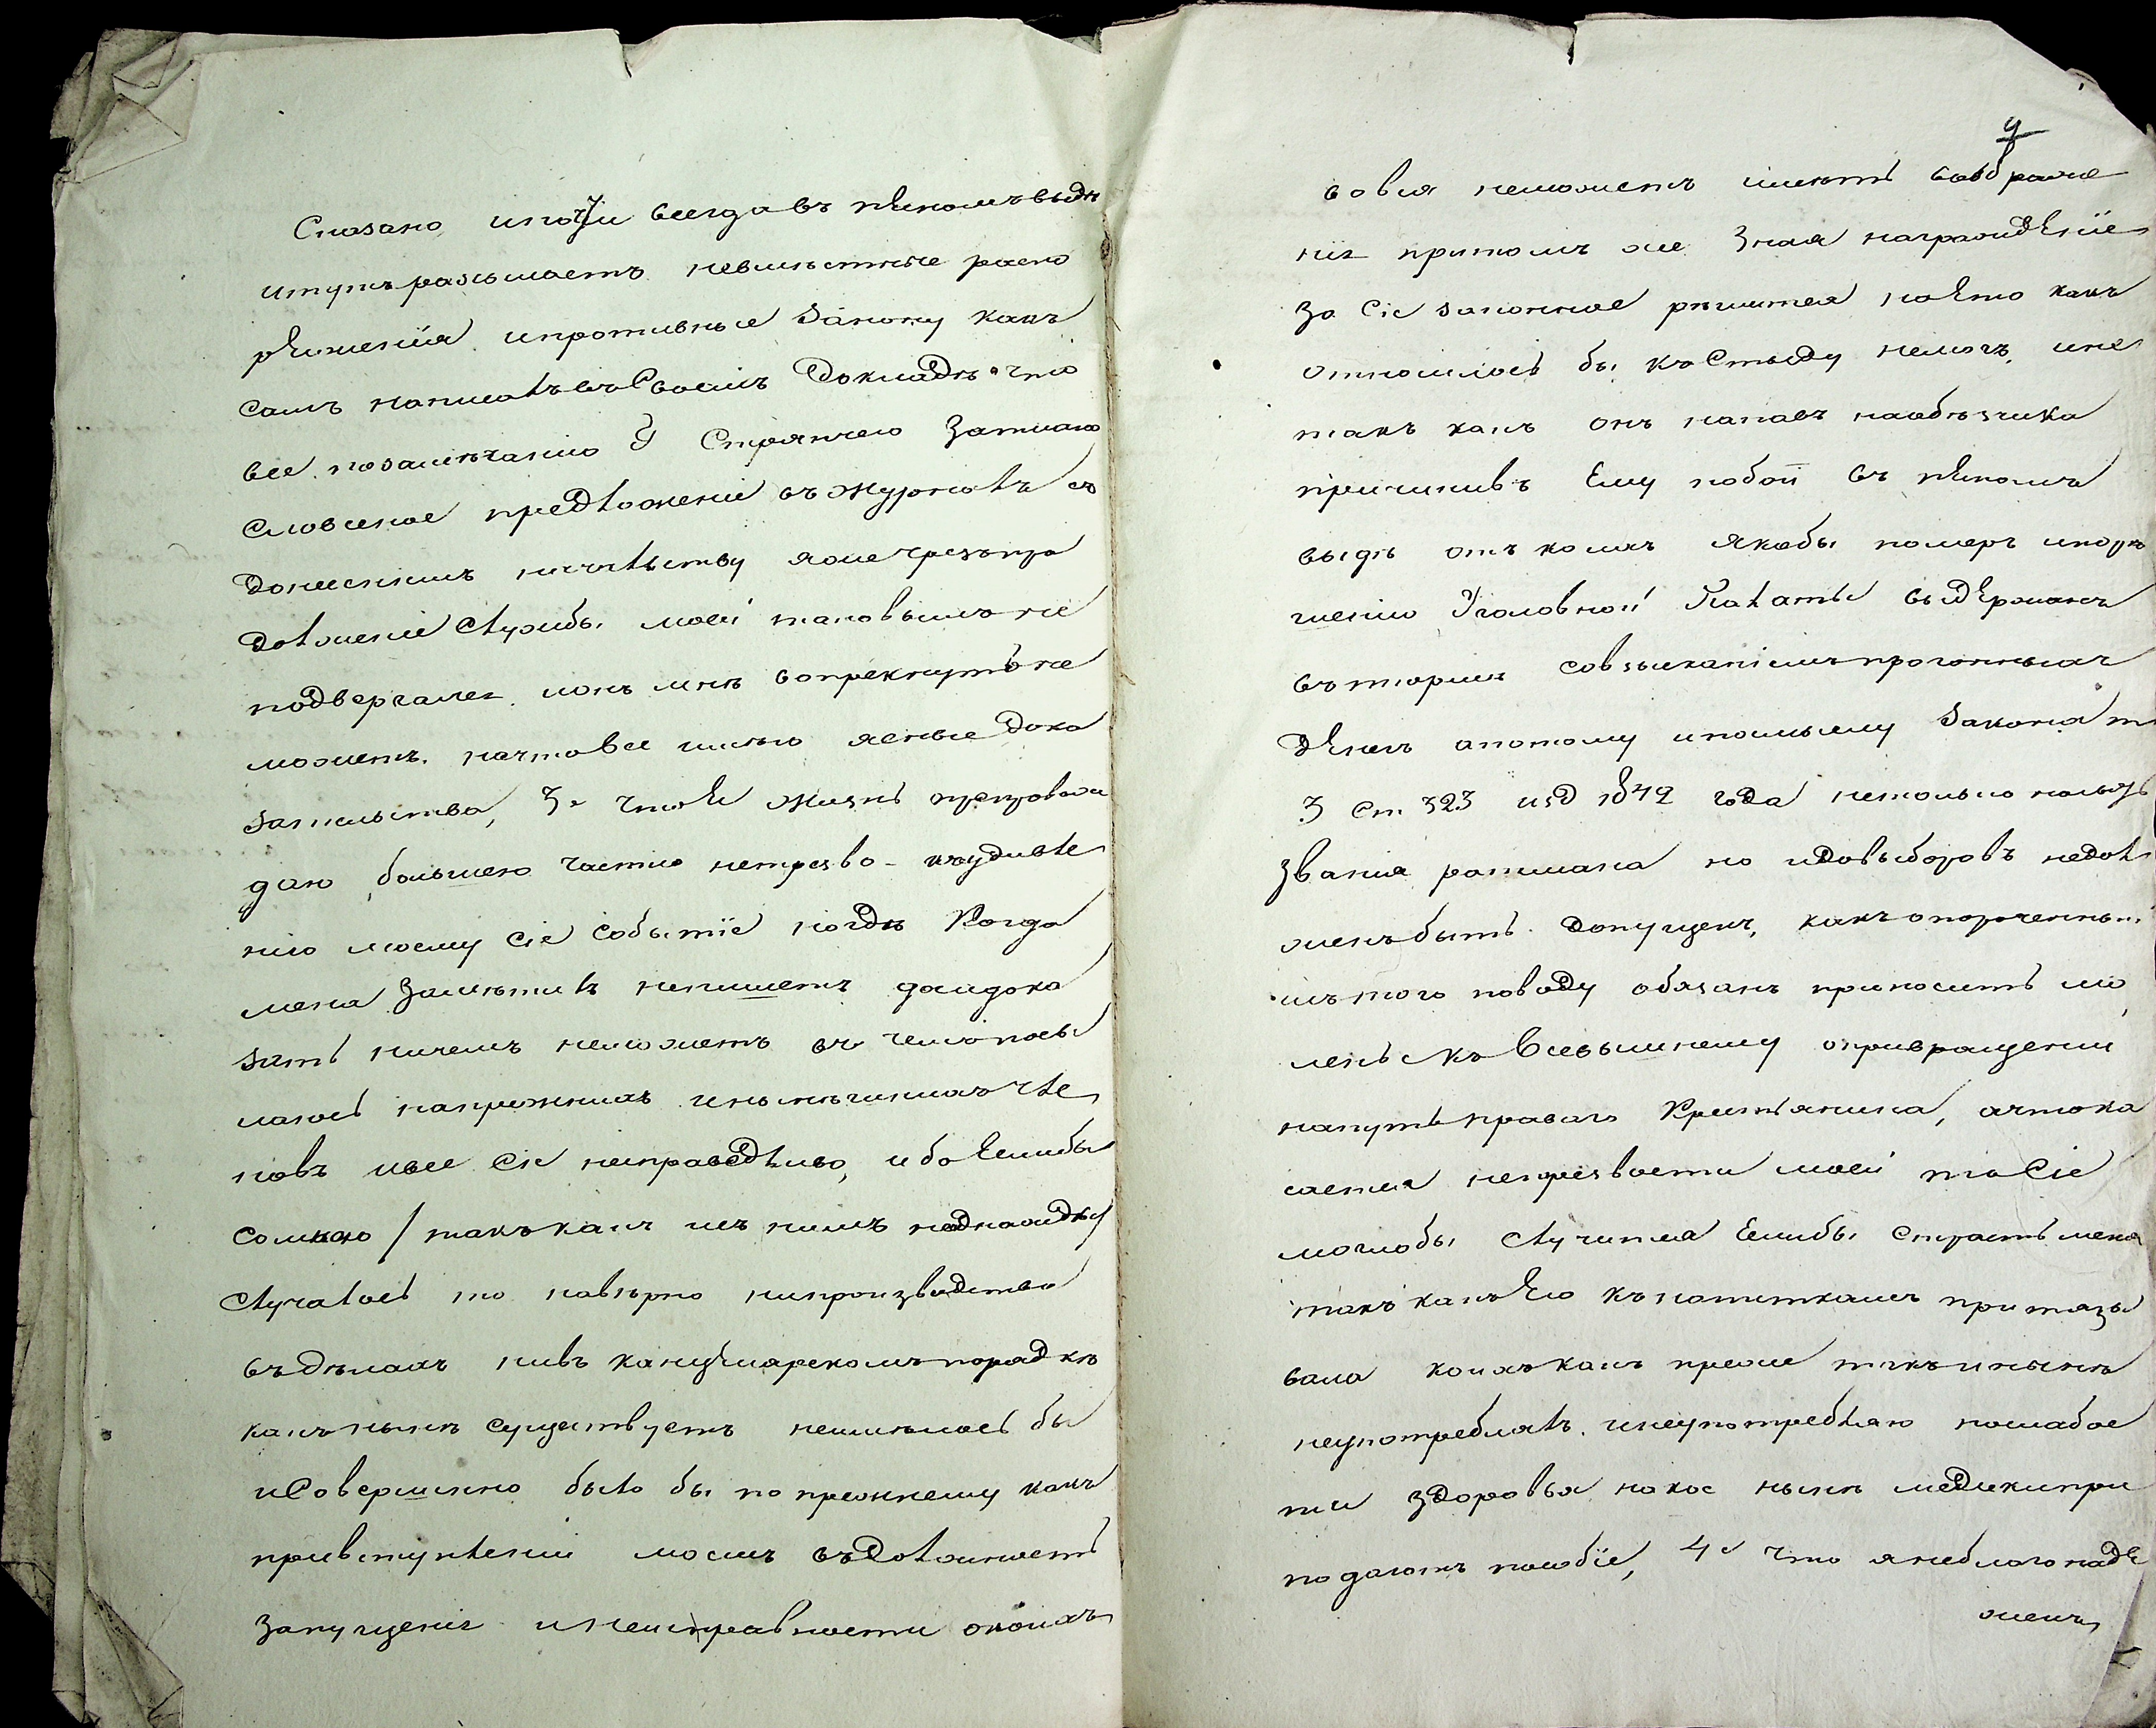 Сказано, ипочти всегда въ пьяномъ видѣ
итутъ размышаетъ невмѣстные распо
ряженія, ипротивные Закону какъ
самъ написалъ въ Своемъ Докладѣ что
все позамѣчанію Г Стряпчего Записано
словесное предложеніе въ журналъ съ
донесеніемъ начальству яже чрезъ про
долженіе Службы моей таковымъ не
подвергался, ионъ мнѣ вопрекнуть не
можетъ, начтовсе имѣю ясные дока
зательства, 3е Чтобы Жизнь препровож
даю, большею частію нетрезво – къудивле
нію моему Сіе Событіе когдѣ Когда
меня Замѣтилъ непишетъ даидока
зать ничемъ неможетъ въ чемъ
лалось напрежнихъ инынѣшнихъ Чле
новъ ивсе Сіе несправедливо, ибо Еслибы
Сомною / такъ какъ исъ нимъ
Случалось то навѣрно нипроизводства
въдѣлахъ нивъ канцелярскомъ порядкѣ
какъ нынѣ существуетъ неимѣлось бы
иСовершенно было бы по прежнему какъ
привступленіи моемъ въДолжность
Запущеніе инеисправности окоихъ
9
вовся неможетъ имѣть соображе
ніе притомъ же Зная награжденіе
за Сіе законное рѣшится наЕто какъ
относилось бы къ Стыду немогъ, ине
такъ какъ онъ напавъ наобъѣзчика
причинивъ Ему побои въ пьяномъ
видѣ отъ коихъ якобы померъ ипорѣ
шенію Уголовной Палаты выдержанъ
въ тюрьмѣ совзысканіемъ прогонныхъ
денегъ апотому ипомнѣнію Закона т
3 Ст 323 изд 1842 года нетолько польз
званія ратмана но идовыборовъ недол
женъ быть допущенъ, какъ опороченный
исътого поводу обязанъ приносить мо
леніе къ Всевышнему опривращеніи
напуть праваго Христіянина, ачтока
сается нетрезвости моей то Сіе
моглобы Случится Еслибы страсть меня
такъ какъ Его къ напиткамъ притязы
вала коихъ какъ преже такъ инынѣ
неупотреблялъ, инеупотребляю послабос
ти здоровья накое нынѣ медики при
подаютъ пособіе, 4е что я неблагонаде
женъ